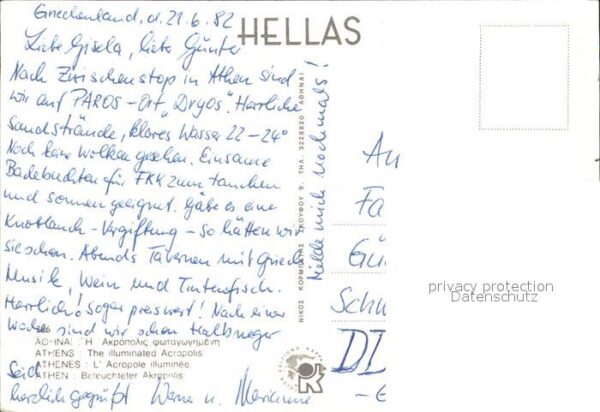 Griechenland, d. 21.6.82
HELLAS
Liebe Gisela, liebe Günter
Nach Zwischenstop in Athen sind
wir auf PAROS-Ort "Dryos". Herrliche
Sandstrände, klares Wasser 22-24°
Noch keine Wolken gesehen. Einsame
Badebuchten für FKK zum tauchen
und sonnen geeignet. Gäbe es eine
Knoblauch-Vergiftung - so hätten wir
sie schon. Abends Tavernen mit Griech.
Musik, Wein und Tintenfisch.
Herrlich! sogar preiswert! Nach einer
Woche sind wir schon Halbneger
Seid
herzlich gegrüßt Werner u. Marianne
Melde mich nochmals!
ΝΙΚΟΣ ΚΟΡΜΠΑΤΗΣ 9, ΤΗΛ. 3228820 ΑΘΗΝΑΙ
An
Fa
Gü
Schu
DI
privacy protection
Datenschutz
ΑΘΗΝΑΙ : Ἡ Ἀκρόπολις φωταγωγημένη
ATHENS : The illuminated Acropolis
ATHENES : L' Acropole illuminée
ATHEN : Beleuchteter Akropolis